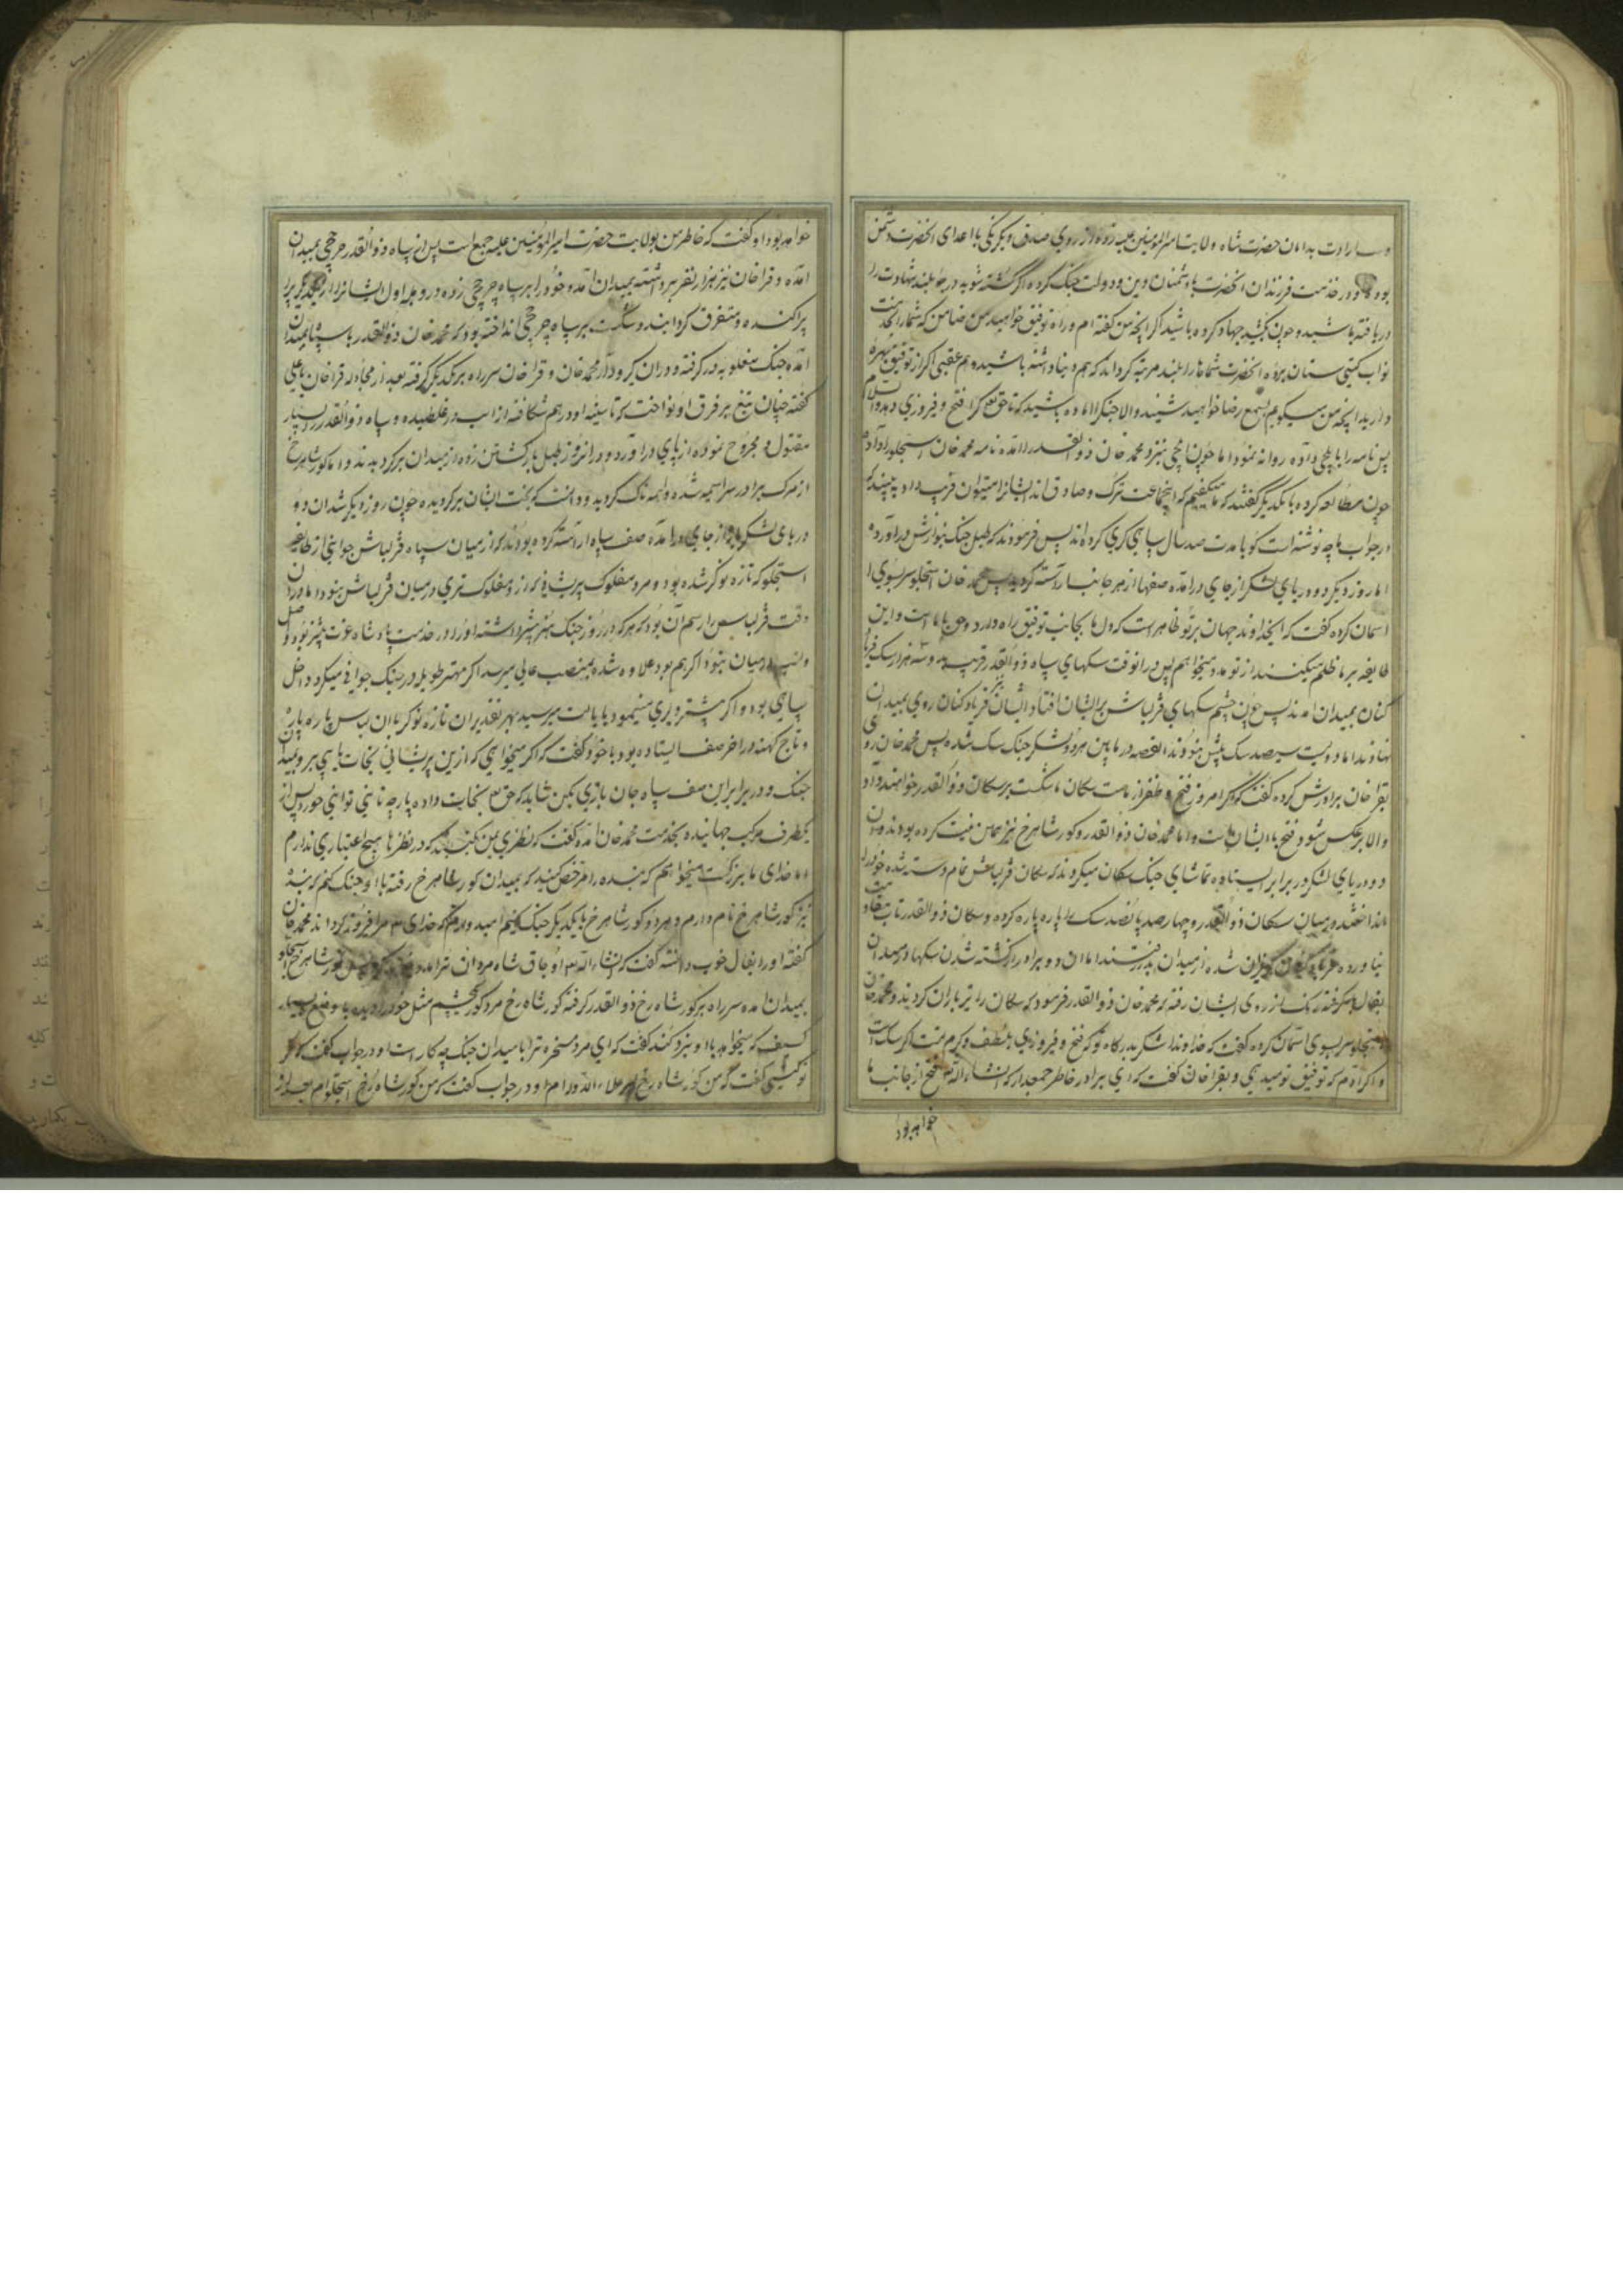 بوده و در خدمت فرزندان انحضرت با دشمنان دین و دولت جنک کرده اکر کشته شوید درجه بلند شهادت را
دریافته باشید و چون بکشید جهاد کرده باشید اکر انچه من کفته ام و راه توفیق خواهید من ضامن که شما را بخدمت
نواب کیتی ستان برده انحضرت شماها را بلند مرتبه کرداند که هم دنیا داشته باشید و هم عقبی اکر از توفیق بهره
دارید انچه من میکویم بسمع رضا خواهید شنید والا جنک را اماده باشید که تا حق تع کرا فتح و فیروزی دهد والسلام
پس نامه را بایلچی داده روانه نمود اما چون ایلچی بنزد محمد خان ذوالقدر امده نامه محمد خان استجلو را داد
چون مطالعه کرده با یکدیکر کفتند که ما میکفتیم که اینجماعت ترک و صادق اند ایشانرا میتوان فریب داد به بینید که
در جواب ما چه نوشته است کویا مدت صد سال سپاهی کری کرده اند پس فرمودند که طبل جنک بنوازش دراورد
اما روز دیکر دو دریای لشکر از جای درامده صفها از هر جانب اراسته کردید پس محمد خان استجلو سر بسوی
اسمان کرده کفت که ایخداوند جهان بر تو ظاهر است که دل ما بجانب توفیق راه دارد و حق با ما است و این
طایفه بر ما ظلم میکنند از تو مدد میخواهم پس درانوقت سکهای سپاه ذوالقدر قریب بدو سه هزار سک
کنان بمیدان امدند پس چون چشم سکهای قزلباش بر ایشان افتاد ایشان نیز فریاد کنان روی بمیدان
نهادند اما دویست سیصد سک بیش نبودند القصه در ما بین هر دو لشکر جنک سک شده پس محمد خان روی
بقراخان برادرش کرده کفت که اکر امروز فتح و ظفر از ماست سکان ما شکست بر سکان ذوالقدر خواهند داد
والا بر عکس شود فتح با ایشان است و اما محمد خان ذوالقدر و کور شاهرخ نیز همین نیت کرده بودند و چون
دو دریای لشکر در برابر ایستاده تماشای جنک سکان میکردند که سکان قزلباش تمام دسته شده خود را
انداختند در میان سکان ذوالقدر و چهار صد پانصد سک را پاره پاره کرده و سکان ذوالقدر تاب مقاومت
نیاورده فریاد کنان کریزان شده از میدان بدر رفتند اما ان دو برادر از کشته شدن سکها در میدان
بفال بد کرفته رنک از روی ایشان رفته که محمد خان ذوالقدر فرمود که سکان را تیرباران کردند و محمد خان
استجلو سر بسوی اسمان کرده کفت که خداوندا شکر بدرکاه تو که فتح و فیروزی بلطف و کرم تست اکر سک است
و اکر ادم که توفیق تو میدهی و بقراخان کفت که ای برادر خاطر جمعدار که انشاء الله تع فتح از جانب ما
خواهد بود
خواهد بود او کفت که خاطر من بولایت حضرت امیرالمؤمنین علیه جمع است پس از سپاه ذوالقدر چرخچی بمیدان
امده و قراخان نیز هزار نفر برداشته بمیدان امد و خود را بر سپاه چرخچی زده در وهله اول ایشانرا از یکدیکر
پراکنده و متفرق کردانید و شکست بر سپاه چرخچی انداخته بود که محمد خان ذوالقدر با سپاه بمیدان
امده جنک مغلوبه در کرفته و دران کر و دار محمد خان و قراخان سر راه بر یکدیکر کرفته بعد از مجادله قراخان یا علی
کفته چنان تیغ بر فرق او نواخت که تا سینه او در هم شکافته از اسب در غلطیده و سپاه ذوالقدر بسیار
مقتول و مجروح نموده از پای دراورد و درانروز طبل بازکشتن زده از میدان برکردیدند و اما کور شاهرخ
از مرک برادر سراسیمه شده واهمه ناک کردید و دانست که بخت ایشان برکردیده چون روز دیکر شد ان دو
دریای لشکر باز از جای درامده صف سپاه اراسته کرده بودند که از میان سپاه قزلباش جوانی از طایفه
استجلو که تازه نوکر شده بود و مرد مفلوک پریشانی که ازو مفلوک تری در میان قزلباش نبود اما دران
وقت قزلباش را رسم ان بود که هر که در روز جنک هنر بیشتر داشته او را در خدمت پادشاه عزت بیشتر بود و اصل
و نسب در میان نبود اکر هم بود علاوه شده بمنصب عالی میرسید اکر مهتر طویله در جنک جوانی میکرد داخل
سپاهی بود و اکر بیشتر دلیری مینمود بایالت میرسید بهر تقدیر ان تازه نوکر با ان لباس پاره پاره
و تاج کهنه در اخر صف ایستاده بود با خود کفت که اکر میخواهی که ازین پریشانی نجات یابی برو بمیدان
جنک و در برابر این صف سپاه جان بازی بکن شاید که حق تع نجات داده پارچه نانی توانی خورد پس از
یکطرف مرکب جهانیده بخدمت محمد خان امده کفت که نظری بمن بکنید که در نظرها هیچ اعتباری ندارم
اما خدای ما بزرکست میخواهم که بنده را مرخص کنید که بمیدان کور شاهرخ رفته با او جنک کنم که بنده
نیز کور شاهرخ نام دارم و هر دو کور شاهرخ با یکدیکر جنک کنیم امیدوارم که خدای تع مرا فیروز کرداند محمد خان
کفته او را بفال خوب دانسته کفت که انشاء الله تع اوجاق شاه مردان ترا مدد کند پس کور شاهرخ استجلو
بمیدان امده سر راه بر کور شاه رخ ذوالقدر کرفته کور شاه رخ مرد کور چشم مثل خود را دیده با وضع بسیار
کثیف که میخواهد با او نبرد کند کفت که ای مرد مسخره ترا با میدان جنک چه کار است او در جواب کفت که مکر
تو کیستی کفت که من کور شاه رخ پسر علاء الدوله ام او در جواب کفت که من کور شاه رخ استجلوام بعد از